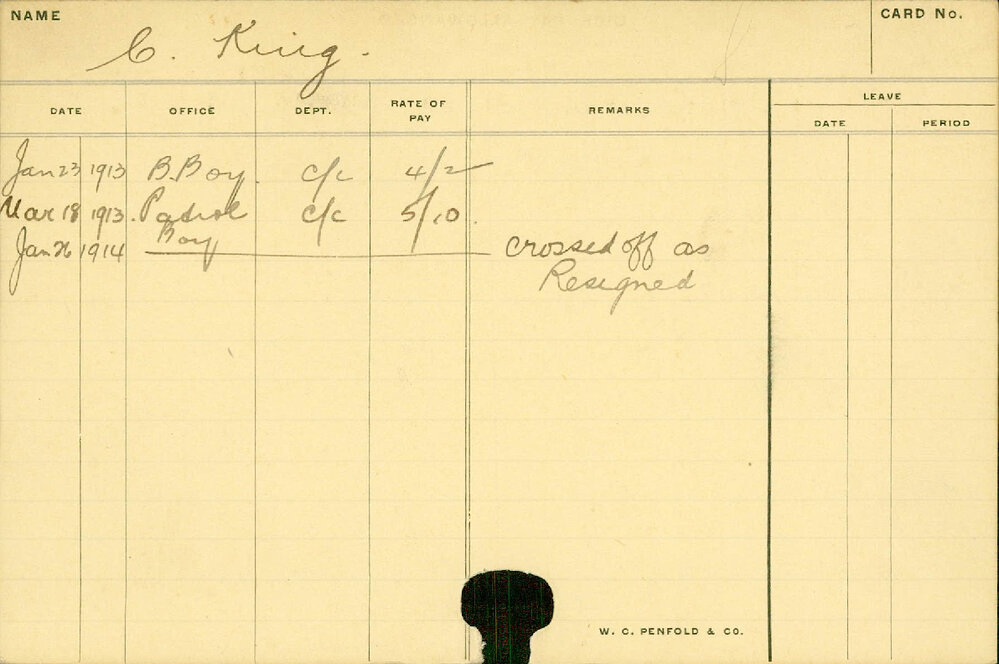 NAME
C. King.
CARD No.
DATE OFFICE DEPT. RATE OF PAY REMARKS LEAVE
DATE PERIOD
Jan 23 1913 B. Boy. c/c 4/2
Mar 18 1913. Patrol c/c 5/10.
Boy
Jan 26 1914 crossed off as
Resigned
W. C. PENFOLD & CO.